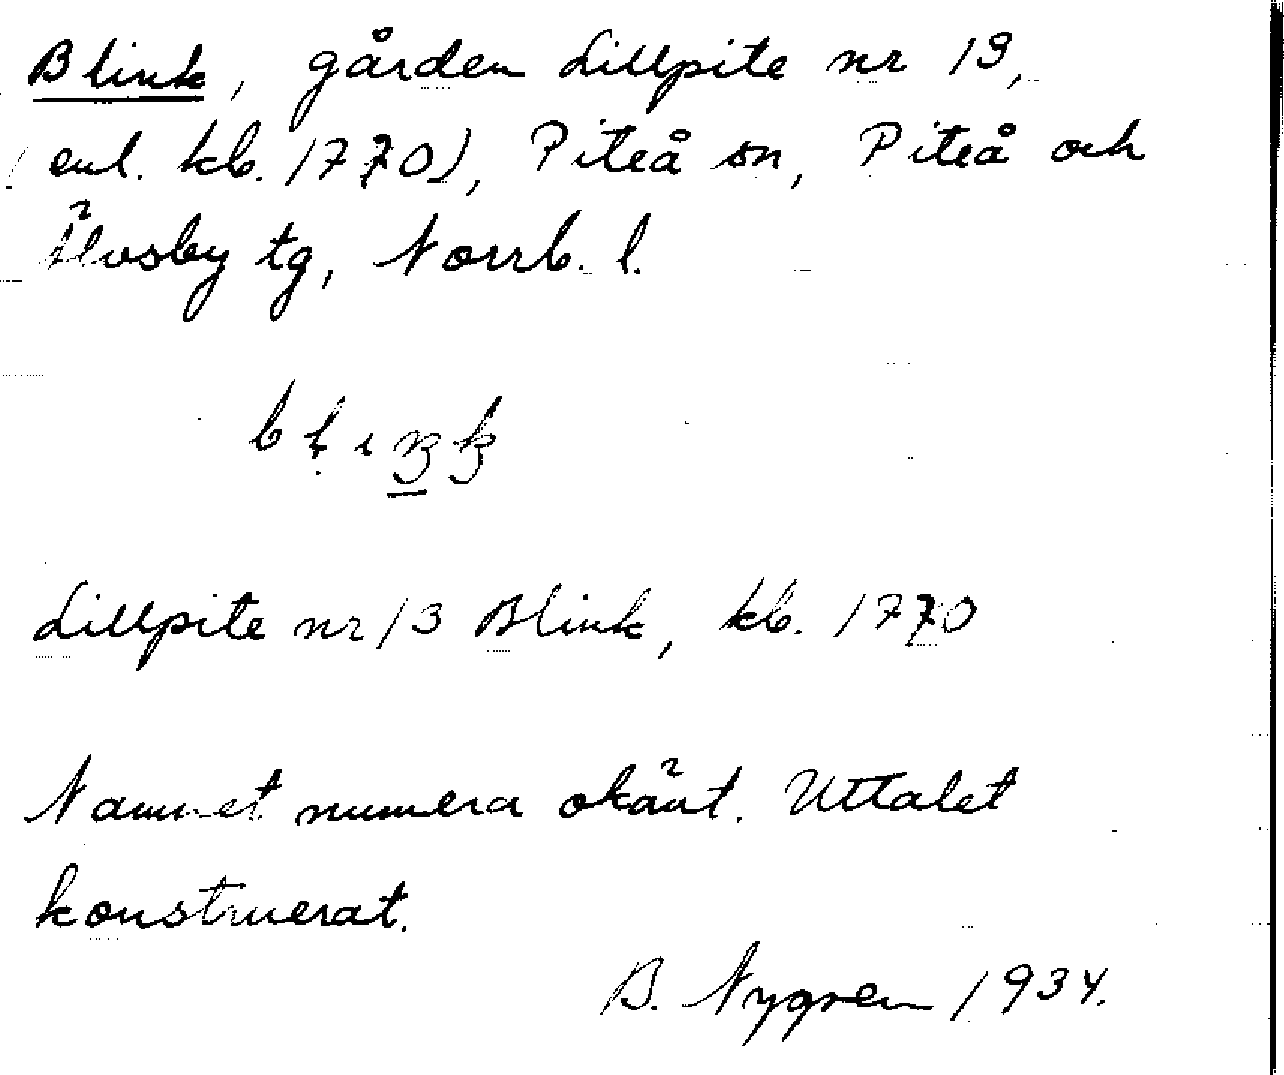 Blink, gården Lillpite nr 13,
(enl. kb. 1770), Piteå sn, Piteå och
Älvsby tg, Norrb. l.
Lillpite nr 13 Blink, kb. 1770
Namnet numera okänt. Uttalet
konstruerat.
B. Nygren 1934.